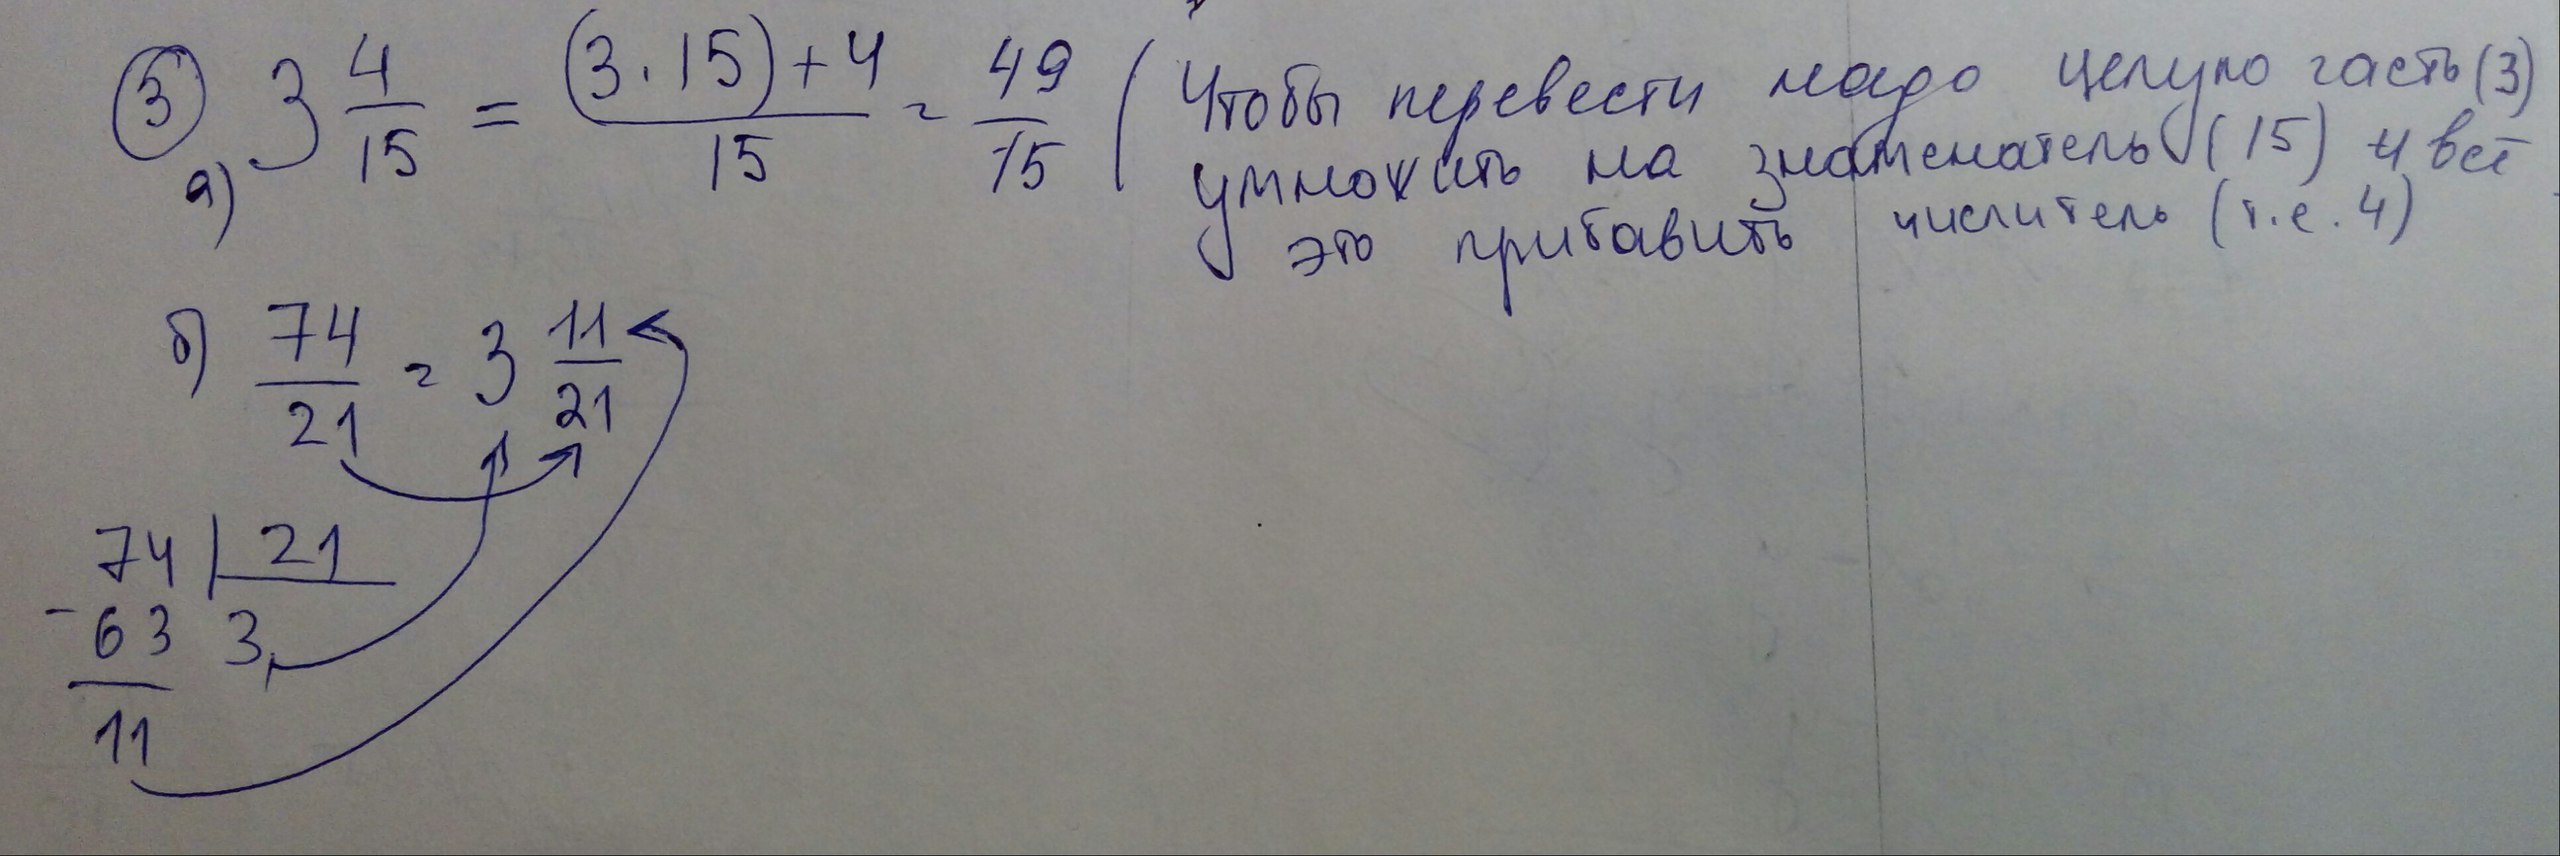 ③ а) 3 4/15 = (3·15)+4/15 = 49/15 (Чтобы перевести надо целую часть (3)
умножить на знаменатель (15) и всё
это прибавить числитель (т.е. 4)
б) 74/21 = 3 11/21
74 | 21
-63 3,
11